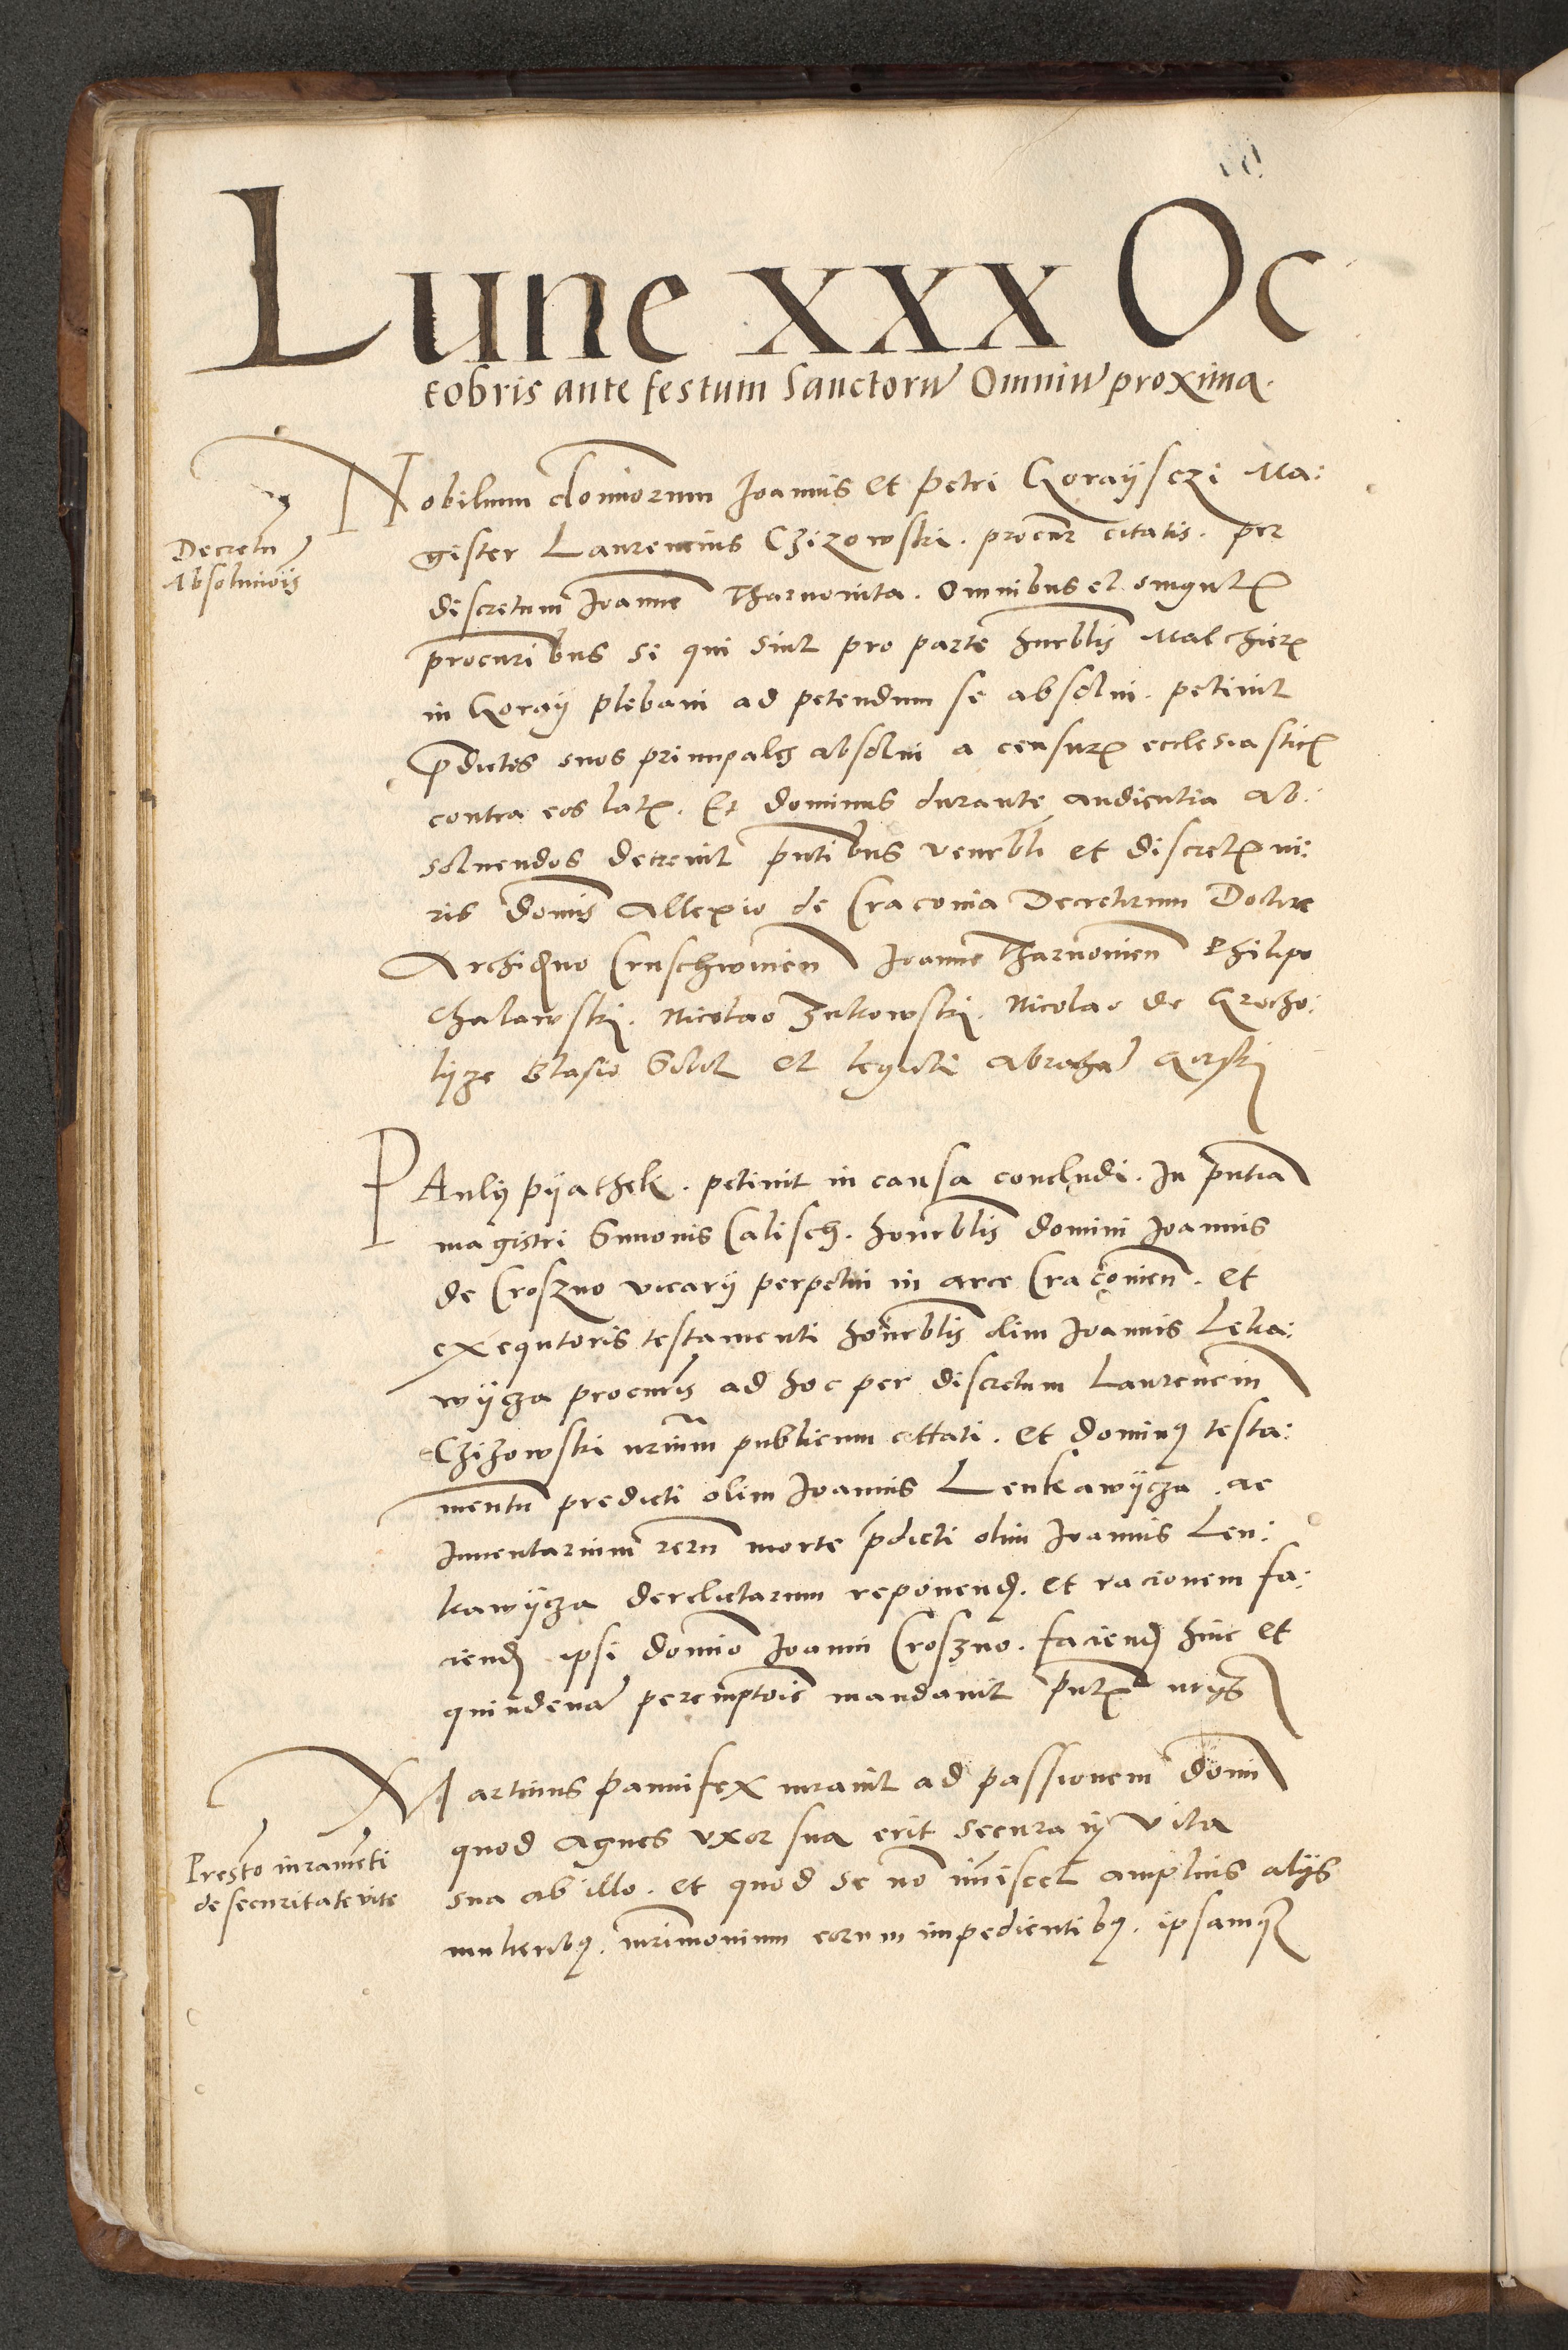 Lune xxx Oc
tobris ante festum Sanctoru Omniu proxima.
Decretu
Absolucio͞is
Nobilium domiorum Joannis et Petri Gorayſczi Ma:
giſter Laurencius Czizowſki. procur͞ citatis. per
diſcretum Joanne͞ Tharnovita. Omnibus et singul͞
procuri͞bus si qui sint pro parte hur͞blis Malchier͞
in Goray plebani ad petendum ſe abſolvi. petiuit
p͞dictos suos principales abſolui a cenſur͞ eccleſiaſtic͞
contra eos lat͞. Et dominus durante audientia ab:
soluendos decreuit p͞ntibus vener͞bli et diſcret͞ vi:
ris dom͞is Allexio de Cracouia Decretorum Doctore
Archid͞no Cruſchwicien͞ Joanne Tharnouien͞ Philipo
Chalawſki. Nicolao Zukowſki. Nicolao de Grocho:
lycze Blaſio et Abraha͞ Gorſki
Pauly Pyathek. petiuit in cauſa concludi. In p͞ntia
magiſtri Simonis Caliſch. honor͞blis domini Joannis
de Croſzno vicarij perpetui in arce Cracouien͞. et
exequtoris teſtamenti honor͞blis olim Joannis Leka:
wycza procur͞is ad hoc per diſcretum Laurenciu͞
Czizowſki n͞rium publicum cittati. et dominꝰ teſta:
mentu͞ predicti olim Joannis Lenkawycza. ac
Inuentarium reru͞ morte p͞dicti olim Joannis Len:
kawycza derelictarum reponend͞. et racionem fa:
ciend͞ ipſi domi͞o Joanni Croſzno. faciend͞ hinc et
quindena͞ peremptor͞ie mandauit p͞nt͞ n͞rijs
Presto iurame͞ti
de ſecuritate vite
Martinus pannifex iurauit ad paſſionem domi͞
quod Agnes vxor ſua erit secura in vita
sua ab illo. et quod se no͞ im͞iscet amplius alijs
mulieribꝰ. m͞rimonium eorum impedientibꝰ. ipſamqꝫ